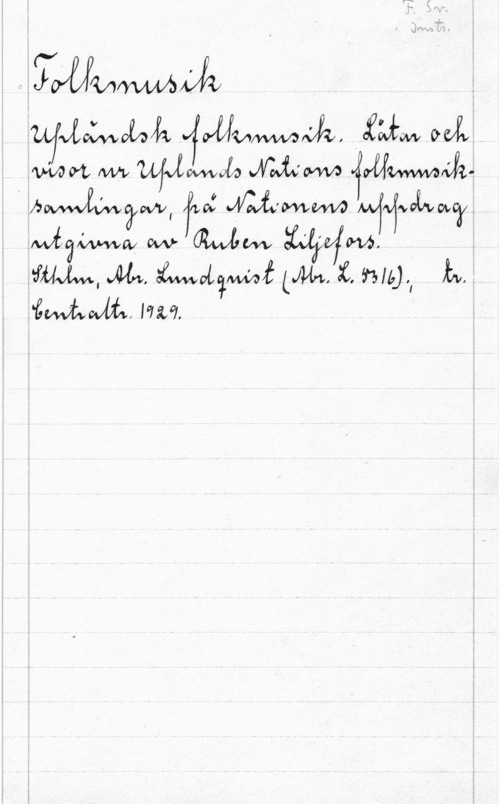 F. Sv.
Instr.
Folkmusik
Upländsk folkmusik. Låtar och
visor ur Uplands Nations folkmusik-
samlingar, på Nationens uppdrag
utgivna av Ruben Liljefors.
Sthlm, Abr. Lundquist (Abr. L. 5316); tr.
Centraltr. 1929.